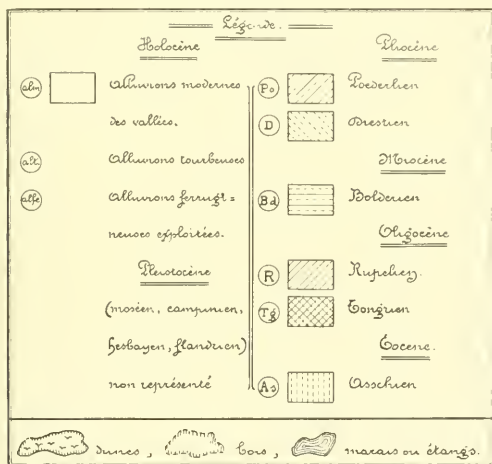 Légende.
Holocène
alm Alluvions modernes
des vallées.
alt Alluvions tourbeuses
alfe Alluvions ferrugi=
neuses exploitées.
Pleistocène
(moséen, campinien,
hesbayen, flandrien)
non représenté
Pliocène
Po Poederlien
D Diestien
Miocène
Bd Bolderien
Oligocène
R Rupelien
Tg Tongrien
Éocène.
As Asschien
dunes, bois, marais ou étangs.